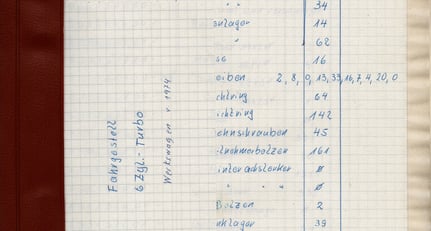 " " 34
nlager 14
" 62
se 16
eiben 2, 8, 0, 13, 33, 16, 7, 4, 20, 0
chtring 64
ichtring 142
ehnschrauben 45
itnehmerbolzen 161
interachslenker ø
" " ø
Bolzen 2
nklager 39
Fahrgestell
6 Zyl.- Turbo
Werkswagen v. 1974